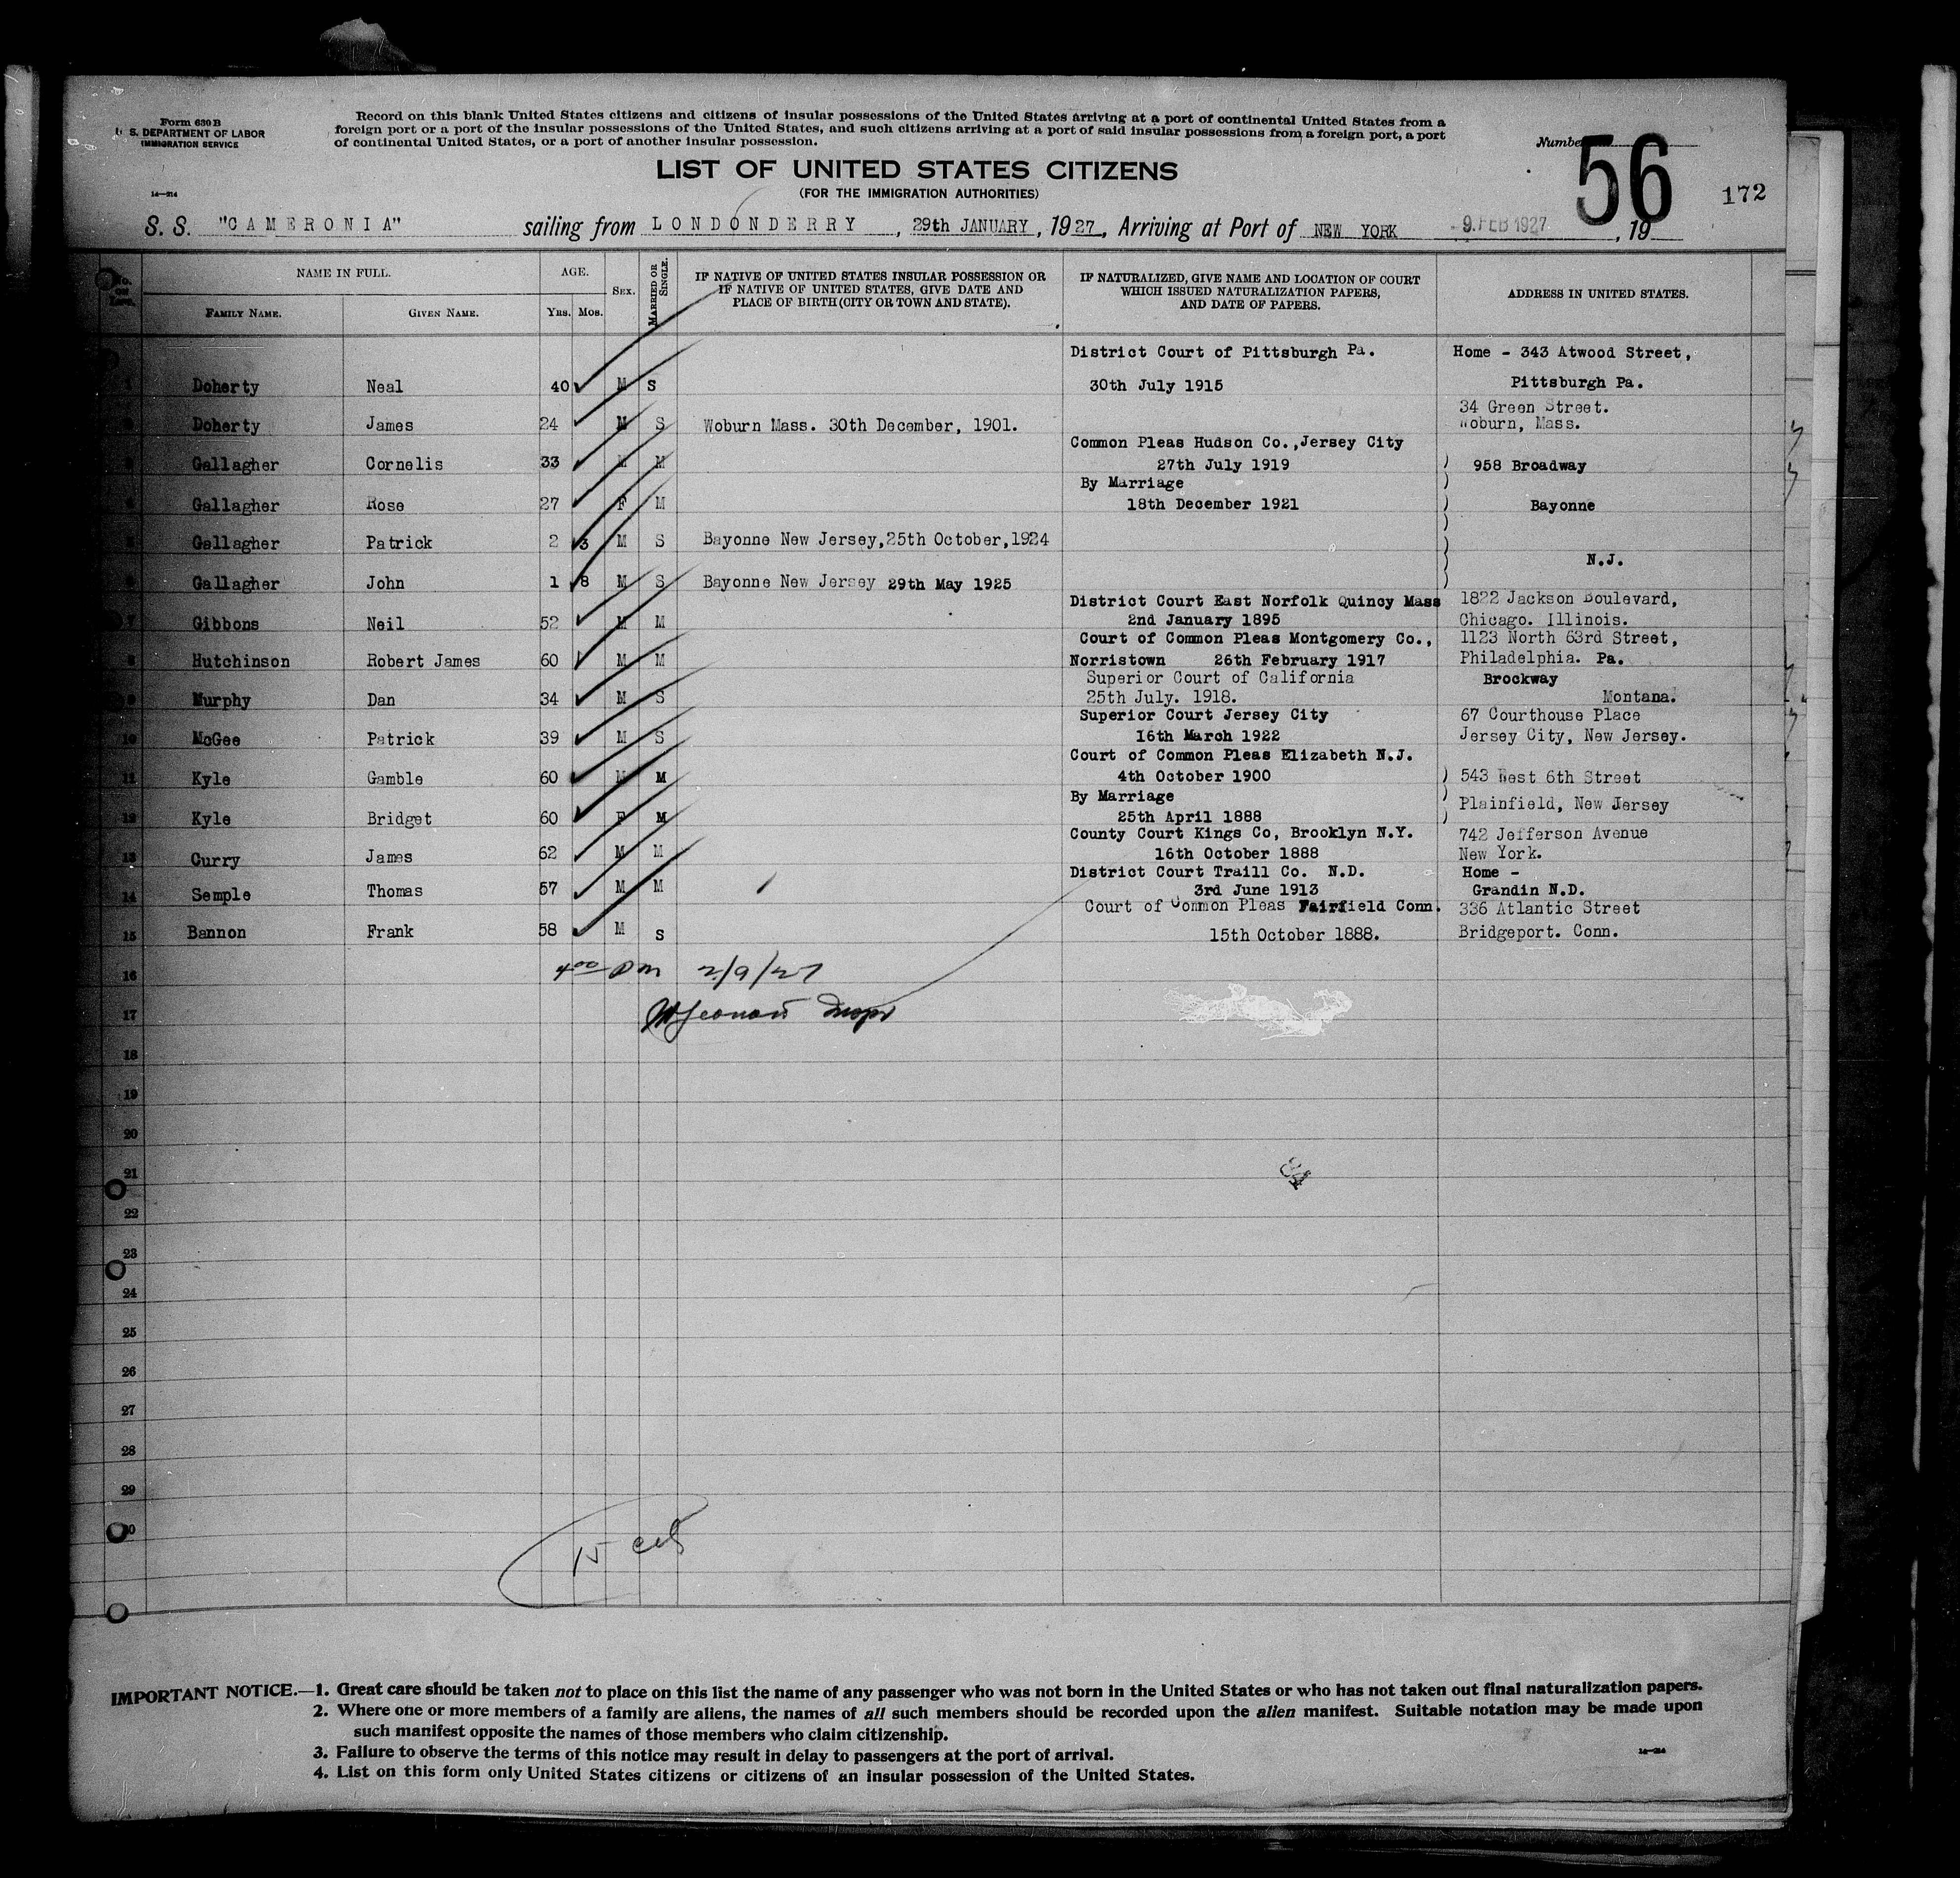 Form 630 B
U. S. DEPARTMENT OF LABOR
IMMIGRATION SERVICE
14—214
Record on this blank United States citizens and citizens of insular possessions of the United States arriving at a port of continental United States from a
foreign port or a port of the insular possessions of the United States, and such citizens arriving at a port of said insular possessions from a foreign port, a port
of continental United States, or a port of another insular possession.
LIST OF UNITED STATES CITIZENS
(FOR THE IMMIGRATION AUTHORITIES)
Number 56
172
S. S. "CAMERONIA" sailing from LONDONDERRY, 29th JANUARY, 1927, Arriving at Port of NEW YORK -9.FEB 1927, 19
No. on List.
NAME IN FULL.
FAMILY NAME. GIVEN NAME.
AGE.
YRS. MOS.
SEX.
MARRIED OR SINGLE.
IF NATIVE OF UNITED STATES INSULAR POSSESSION OR
IF NATIVE OF UNITED STATES, GIVE DATE AND
PLACE OF BIRTH (CITY OR TOWN AND STATE).
IF NATURALIZED, GIVE NAME AND LOCATION OF COURT
WHICH ISSUED NATURALIZATION PAPERS,
AND DATE OF PAPERS.
ADDRESS IN UNITED STATES.
District Court of Pittsburgh Pa. Home - 343 Atwood Street,
1 Doherty Neal 40 M S 30th July 1915 Pittsburgh Pa.
34 Green Street.
2 Doherty James 24 M S Woburn Mass. 30th December, 1901. Woburn, Mass.
Common Pleas Hudson Co.,Jersey City
3 Gallagher Cornelis 33 M M 27th July 1919 ) 958 Broadway
By Marriage )
4 Gallagher Rose 27 F M 18th December 1921 ) Bayonne
)
5 Gallagher Patrick 2 3 M S Bayonne New Jersey,25th October,1924 )
) N.J.
6 Gallagher John 1 8 M S Bayonne New Jersey 29th May 1925 )
District Court East Norfolk Quincy Mass 1822 Jackson Boulevard,
7 Gibbons Neil 52 M M 2nd January 1895 Chicago. Illinois.
Court of Common Pleas Montgomery Co., 1123 North 63rd Street,
8 Hutchinson Robert James 60 M M Norristown 26th February 1917 Philadelphia. Pa.
Superior Court of California Brockway
9 Murphy Dan 34 M S 25th July. 1918. Montana.
Superior Court Jersey City 67 Courthouse Place
10 McGee Patrick 39 M S 16th March 1922 Jersey City, New Jersey.
Court of Common Pleas Elizabeth N.J.
11 Kyle Gamble 60 M M 4th October 1900 ) 543 West 6th Street
By Marriage ) Plainfield, New Jersey
12 Kyle Bridget 60 F M 25th April 1888 )
County Court Kings Co, Brooklyn N.Y. 742 Jefferson Avenue
13 Curry James 62 M M 16th October 1888 New York.
District Court Traill Co. N.D. Home -
14 Semple Thomas 57 M M 3rd June 1913 Grandin N.D.
Court of Common Pleas Fairfield Conn. 336 Atlantic Street
15 Bannon Frank 58 M S 15th October 1888. Bridgeport. Conn.
16 4 00 PM 2/9/27
17
18
19
20
21 84
22
23
24
25
26
27
28
29
30
15
IMPORTANT NOTICE.—1. Great care should be taken not to place on this list the name of any passenger who was not born in the United States or who has not taken out final naturalization papers.
2. Where one or more members of a family are aliens, the names of all such members should be recorded upon the alien manifest. Suitable notation may be made upon
such manifest opposite the names of those members who claim citizenship.
3. Failure to observe the terms of this notice may result in delay to passengers at the port of arrival.
4. List on this form only United States citizens or citizens of an insular possession of the United States.
14—214